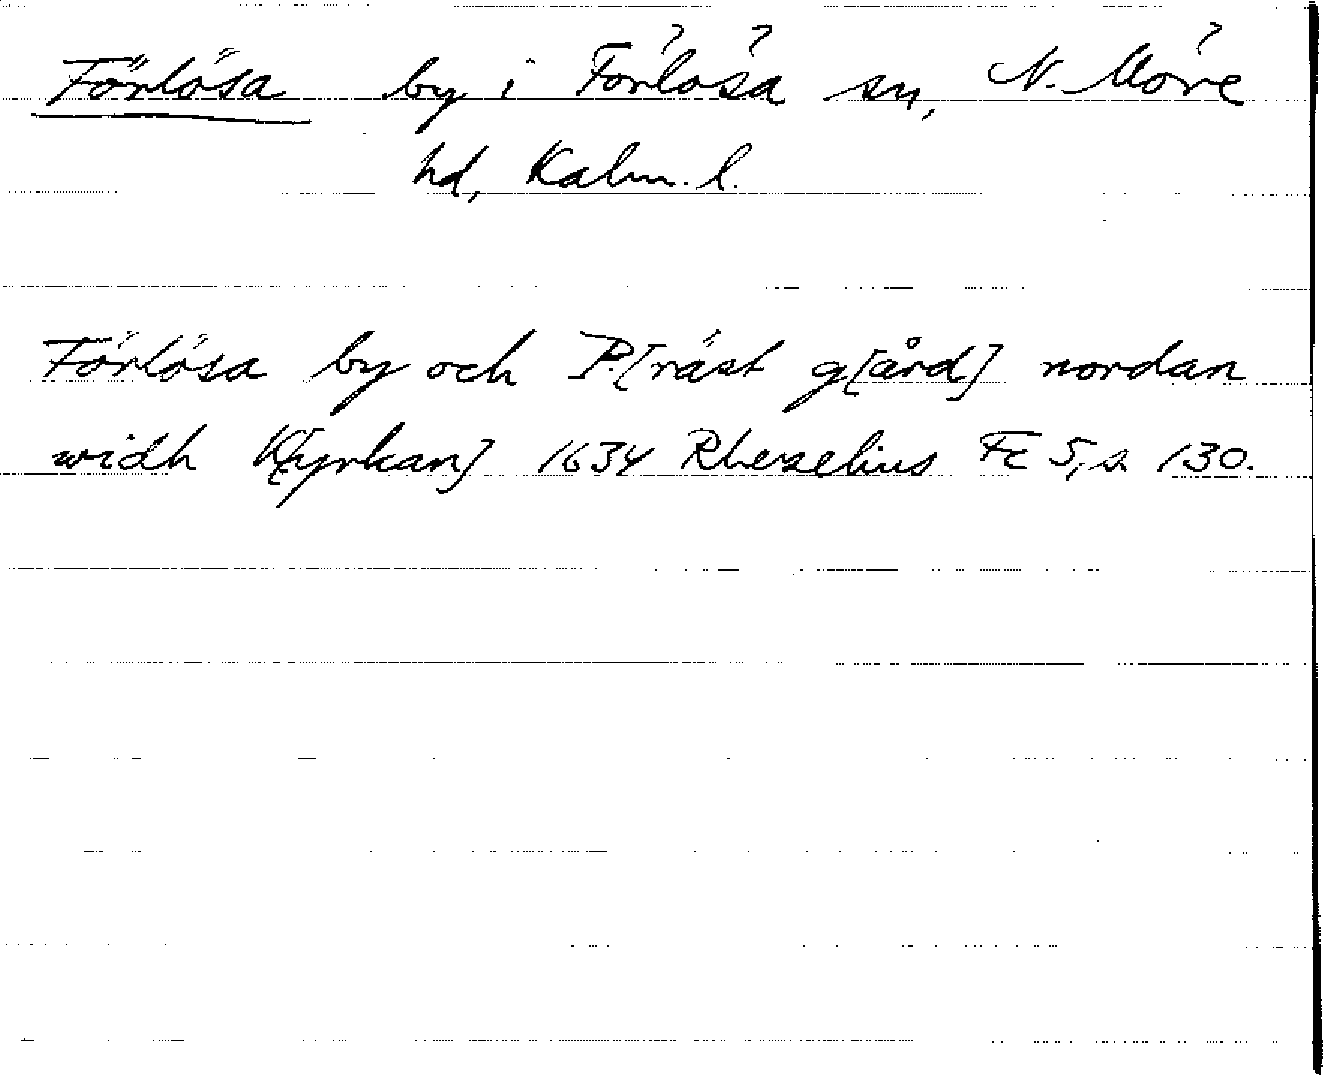 Förlösa by i Förlösa sn, N. Möre
hd, Kalm. l.
Förlösa by och P.[räst g[ård] nordan
widh K[yrkan] 1634 Rhezelius Fc 5, s. 130.